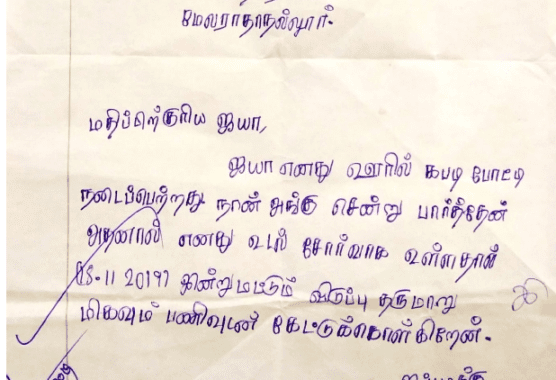 மேலராதாநல்லூர்.
மதிப்பிற்குரிய ஐயா,
ஐயா எனது ஊரில் கபடி போட்டி
நடைப்பெற்றது நான் அங்கு சென்று பார்த்தேன்
அதனால் எனது உடல் சோர்வாக உள்ளதால்
இன்று மட்டும் விடுப்பு தருமாறு
மிகவும் பணிவுடன் கேட்டுக்கொள்கிறேன்.